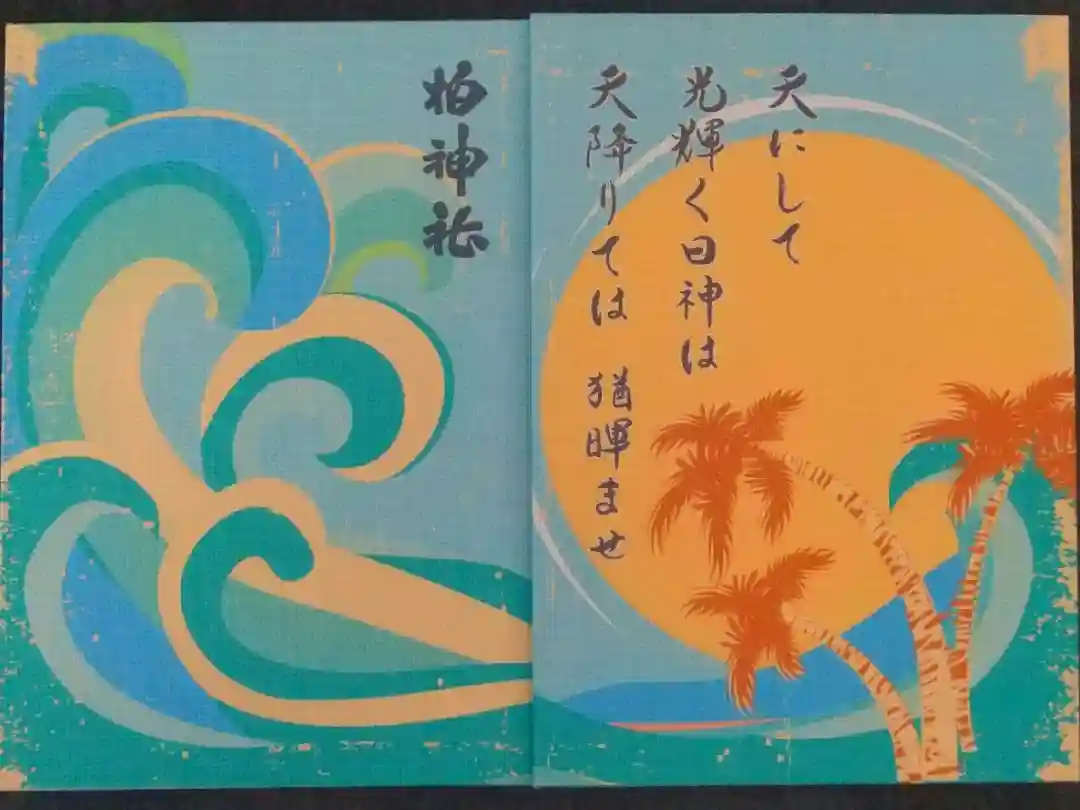 天にして
光輝く日神は
天降りては 猶暉ませ
柏神社